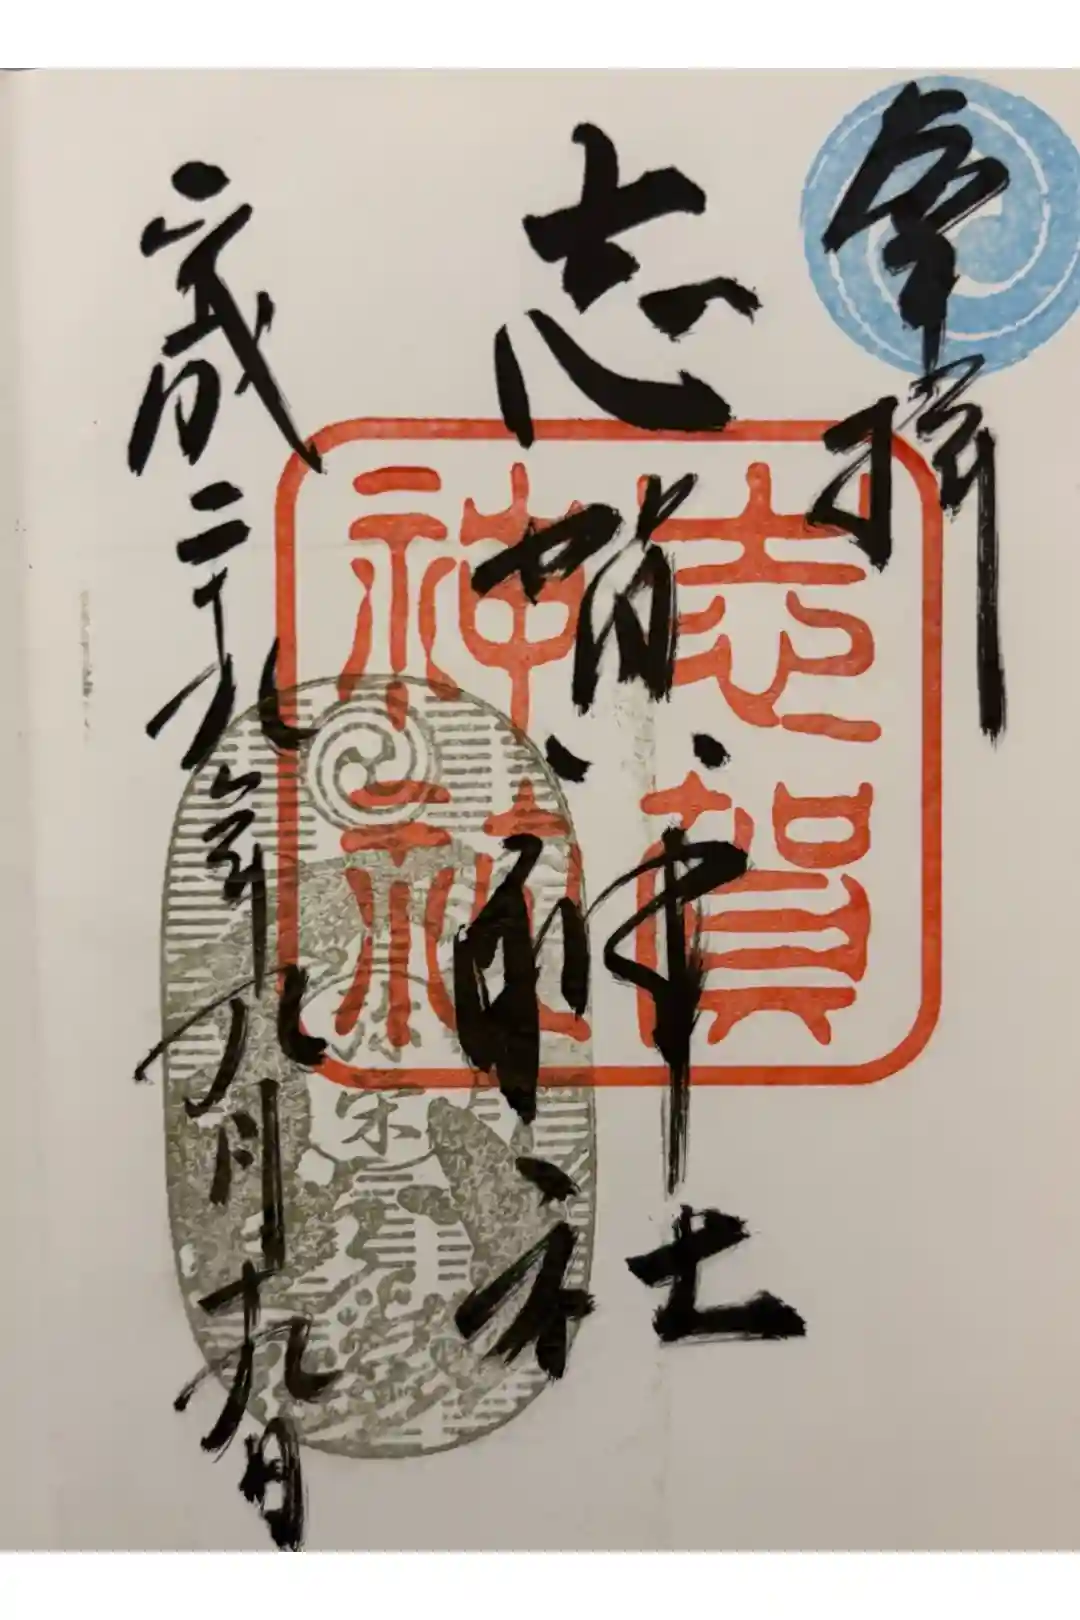 奉拝
志賀神社
志賀
神社
平成二十九年九月十九日